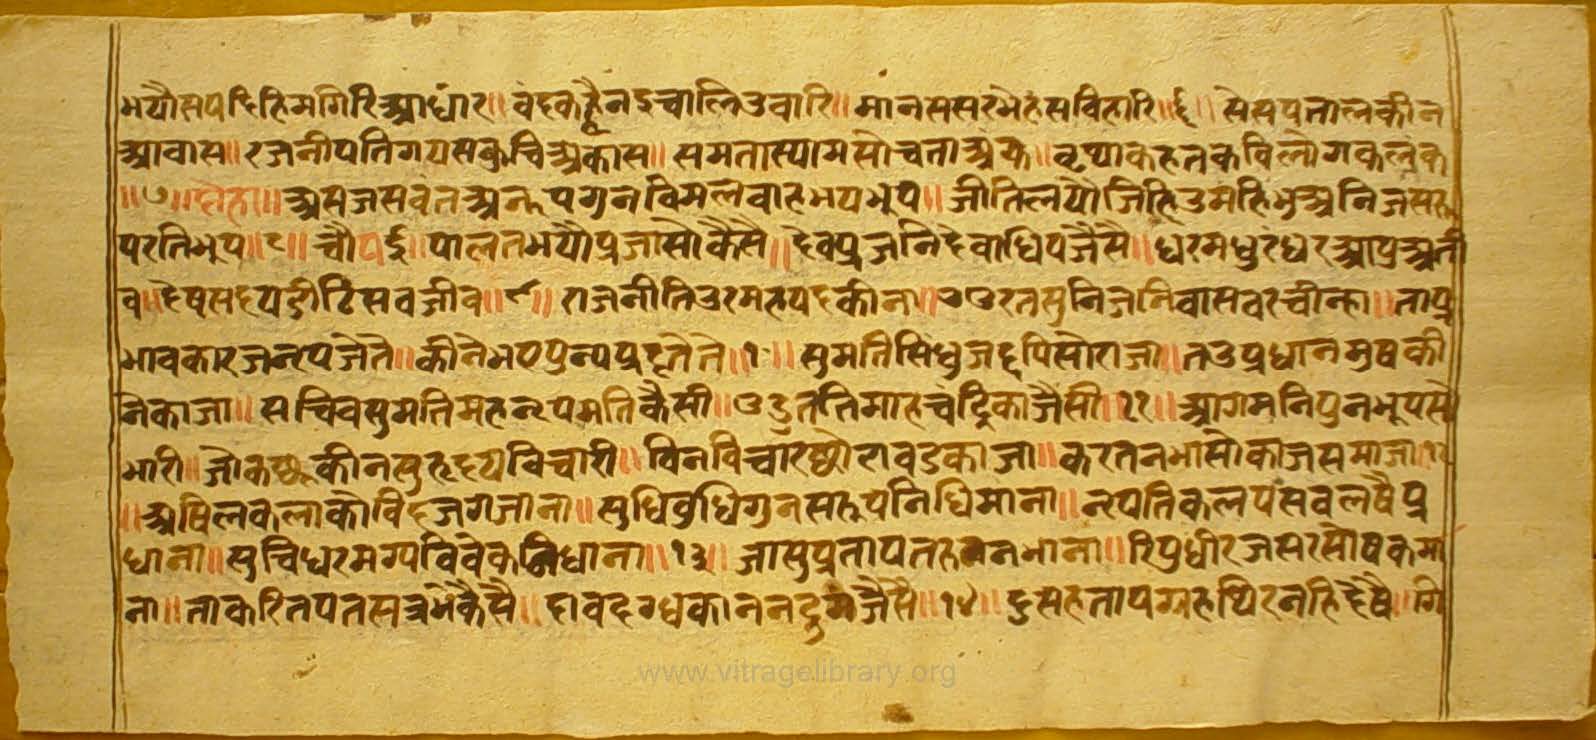 भयौसपदिहिमगिरिआधार॥ वंदकछूनइचालिउवारि॥ मानससरमेहंसविहारि॥६॥ सेसपतालकीन
आवास॥ रजनीपतिगयसकुचिअकास॥ समतास्यामसोचताअंक॥ वृथाकहतकविलोगकलंक
॥७॥ दोहा॥ असजसवंतअनूपगुनविमलवाहभयभूप॥ जीतिलयोजिहिउमहिभुअनिजसह
परतिभूप॥८॥ चौपई॥ पालतभयौप्रजासोकैसै॥ देवप्रजनिदेवाधिपजैसै॥ धरमधुरंधरआपुअती
व॥ देषसदयद्रीटिसवजीव॥९॥ राजनीतिउरमहपदकीना॥ उरतसुनिजनिवासवरचीन्हा॥ ताप्र
भावकारजनृपजेते॥ कीनेभएपुन्यप्रदतेते॥१०॥ सुमतिसिंधुजद्दपिसोराजा॥ तउप्रधानमुषकी
निकाजा॥ सचिवसुमतिमहनृपमतिकैसी॥ उडुततिमाहचंद्रिकाजैसी॥११॥ आगमनिपुनभूपसै
भारी॥ जोकछुकीनसुहृदयविचारी॥ विनविचारछोटावडकाजा॥ करतनभासोकाजसमाजा॥१२
॥अषिलकलाकोविदजगजाना॥ सुधिवुधिगुनसत्रुपनिधिमाना॥ नृपतिकलपसवलषैप्र
धाना॥ सुचिधरमग्यविवेकनिधाना॥१३॥ जासुप्रतापतरुननभाना॥ रिपुधीरजसरसोषकमा
ना॥ ताकरितपतसत्रुभेकैसै॥ दावदग्धकाननद्रुमजैसै॥१४॥ दुसहतापग्रहथिरनहिदेषै॥ गि
www.vitragelibrary.org